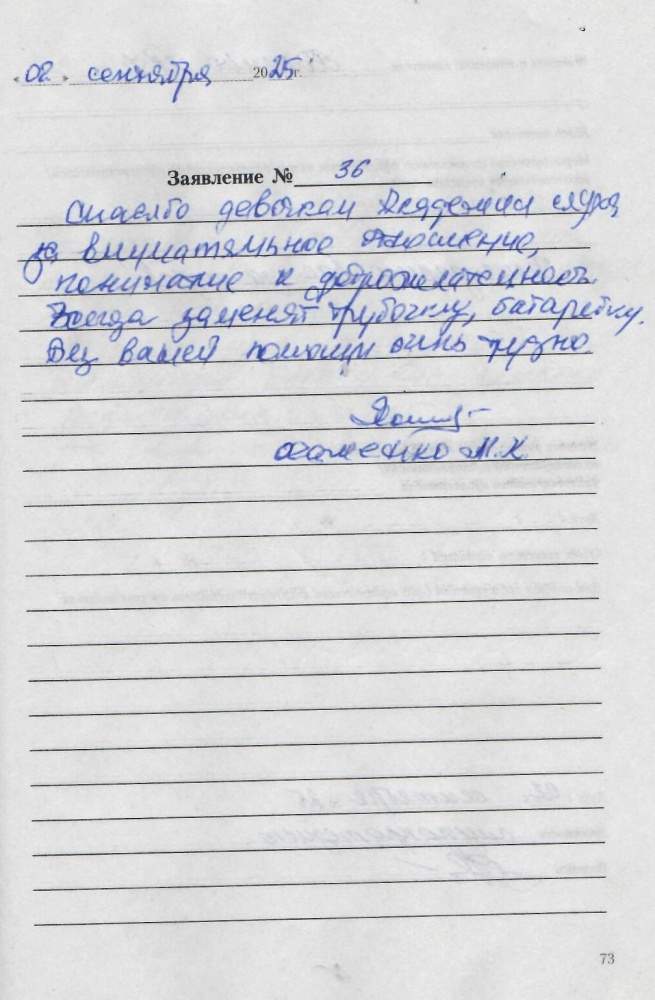 « 02 » сентября 2025г.
Заявление № 36
Спасибо девочкам Академии слуха
за внимательное отношение,
понимание и доброжелательность.
Всегда заменят трубочку, батарейку.
Без вашей помощи очень трудно.
М.К.
73